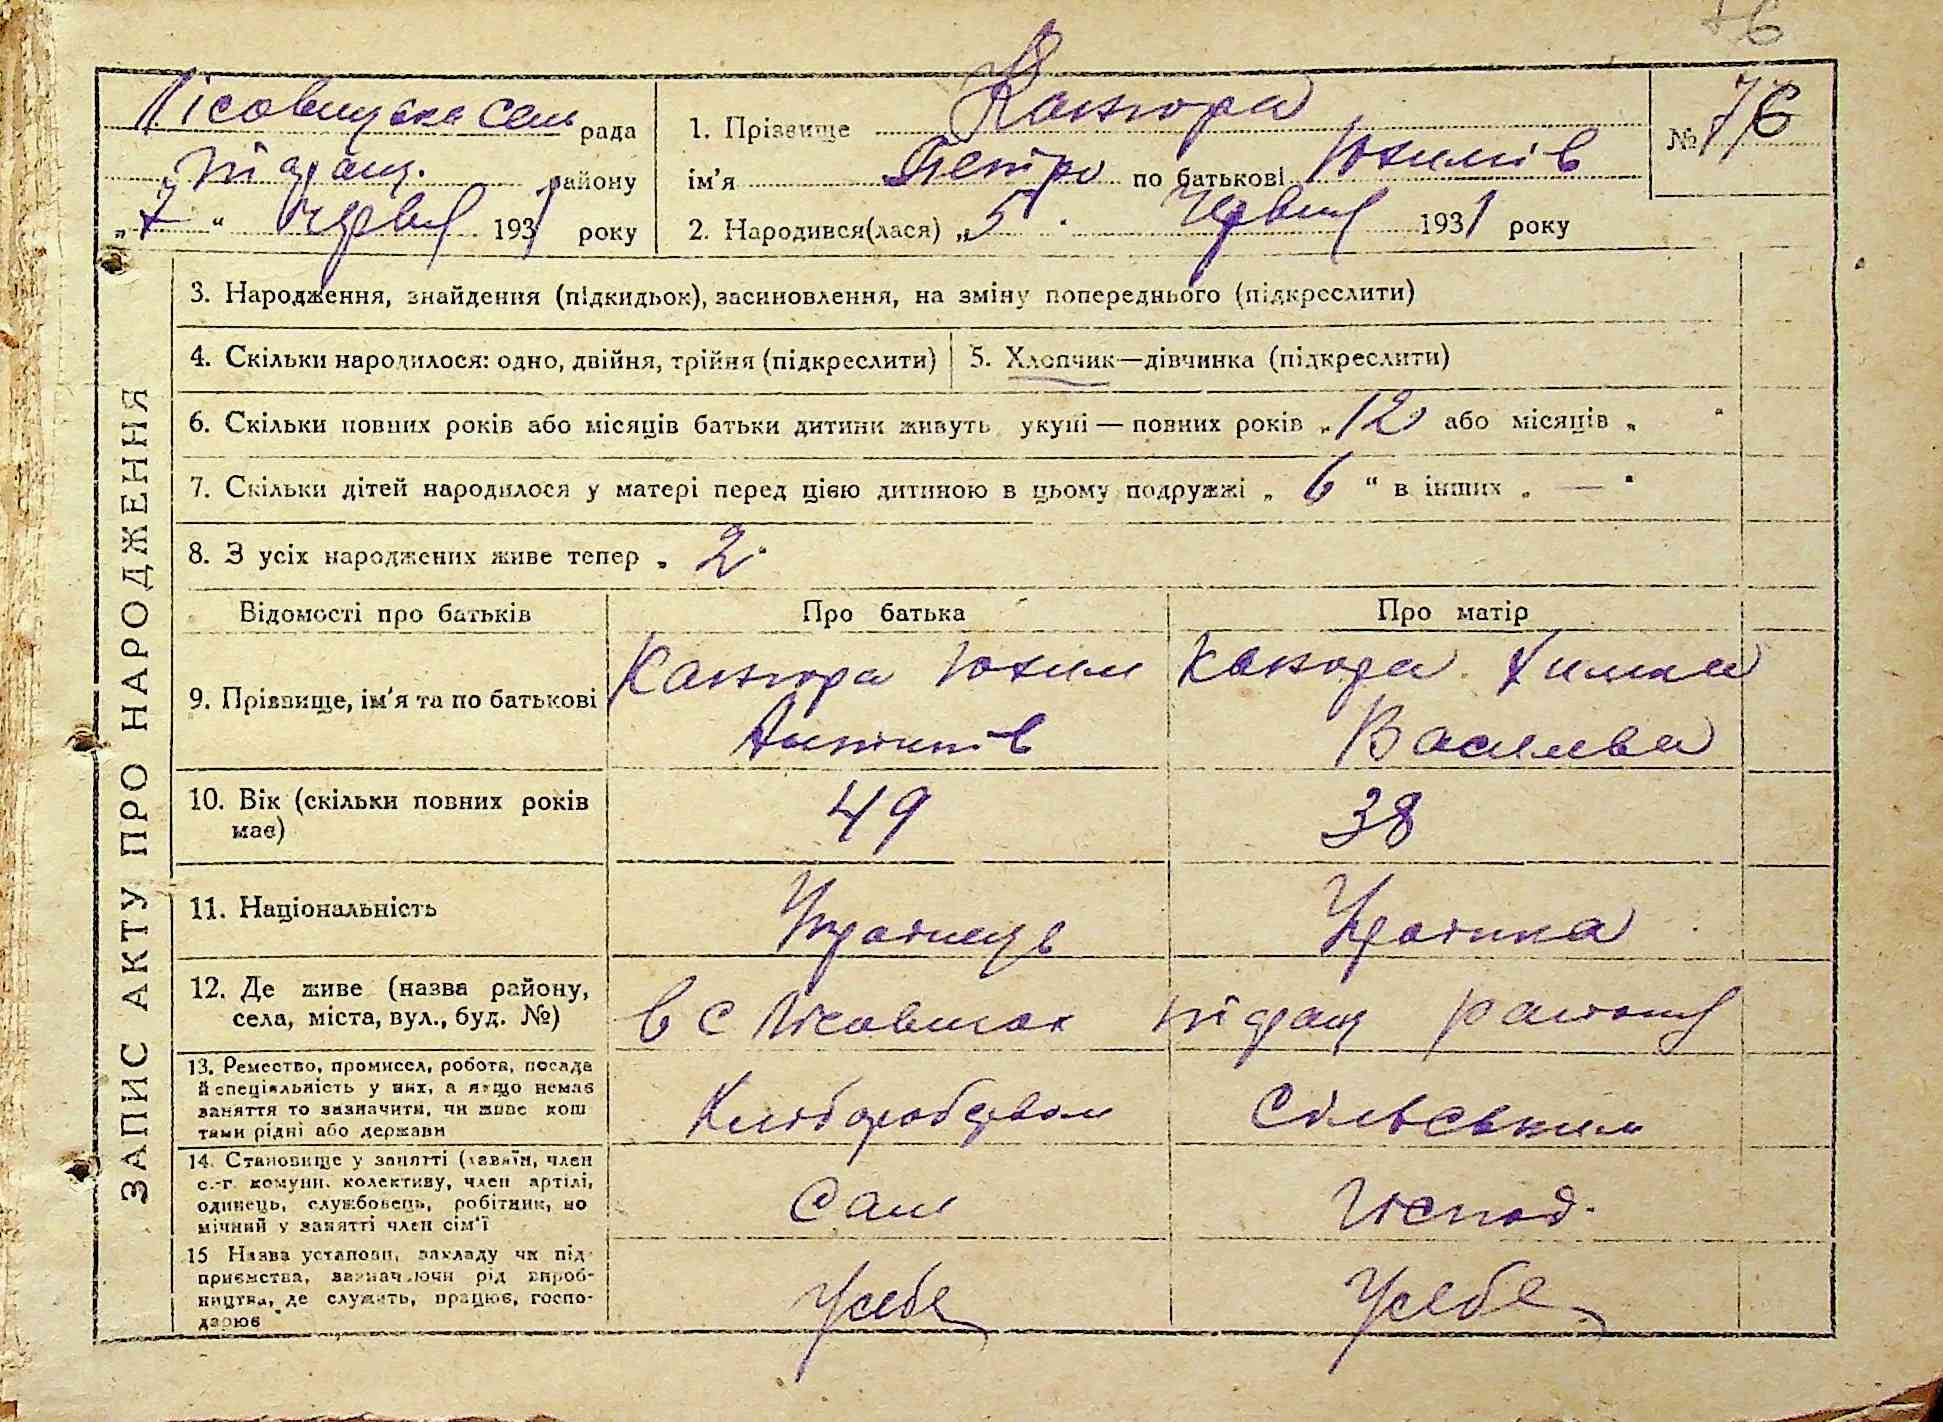 76
Лісовицька сель рада
Таращ. району
„7“ червня 1931 року
1. Прізвище Канюра
ім'я Петро по батькові Юхимів
№ 76
2. Народився(лася) „5“ червня 1931 року
ЗАПИС АКТУ ПРО НАРОДЖЕННЯ
3. Народження, знайдення (підкидьок), засиновлення, на зміну попереднього (підкреслити)
4. Скільки народилося: одно, двійня, трійня (підкреслити)
5. Хлопчик—дівчинка (підкреслити)
6. Скільки повних років або місяців батьки дитини живуть укупі — повних років „12 або місяців „ “
7. Скільки дітей народилося у матері перед цією дитиною в цьому подружжі „ 6 “ в інших „ — “
8. З усіх народжених живе тепер „ 2 “
Відомості про батьків
Про батька
Про матір
9. Прізвище, ім'я та по батькові
Канюра Юхим
Антипів
Канюра
Василева
10. Вік (скільки повних років
має)
49
38
11. Національність
Українець
Українка
12. Де живе (назва району,
села, міста, вул., буд. №)
в с Лісовичах Таращ району
13. Ремество, промисел, робота, посада
й спеціяльність у них, а якщо немає
заняття то зазначити, чи живе кош
тами рідні або держави
Хліборобством
Сільським
14. Становище у занятті (хазяїн, член
с.-г. комуни. колективу, член артілі,
одинець, службовець, робітник, по
мічний у занятті член сім'ї
Сам
Господ.
15 Назва установи, закладу чи під-
приємства, зазначаючи рід вироб-
ництва, де служить, працює, госпо-
дарює
У себе
У себе